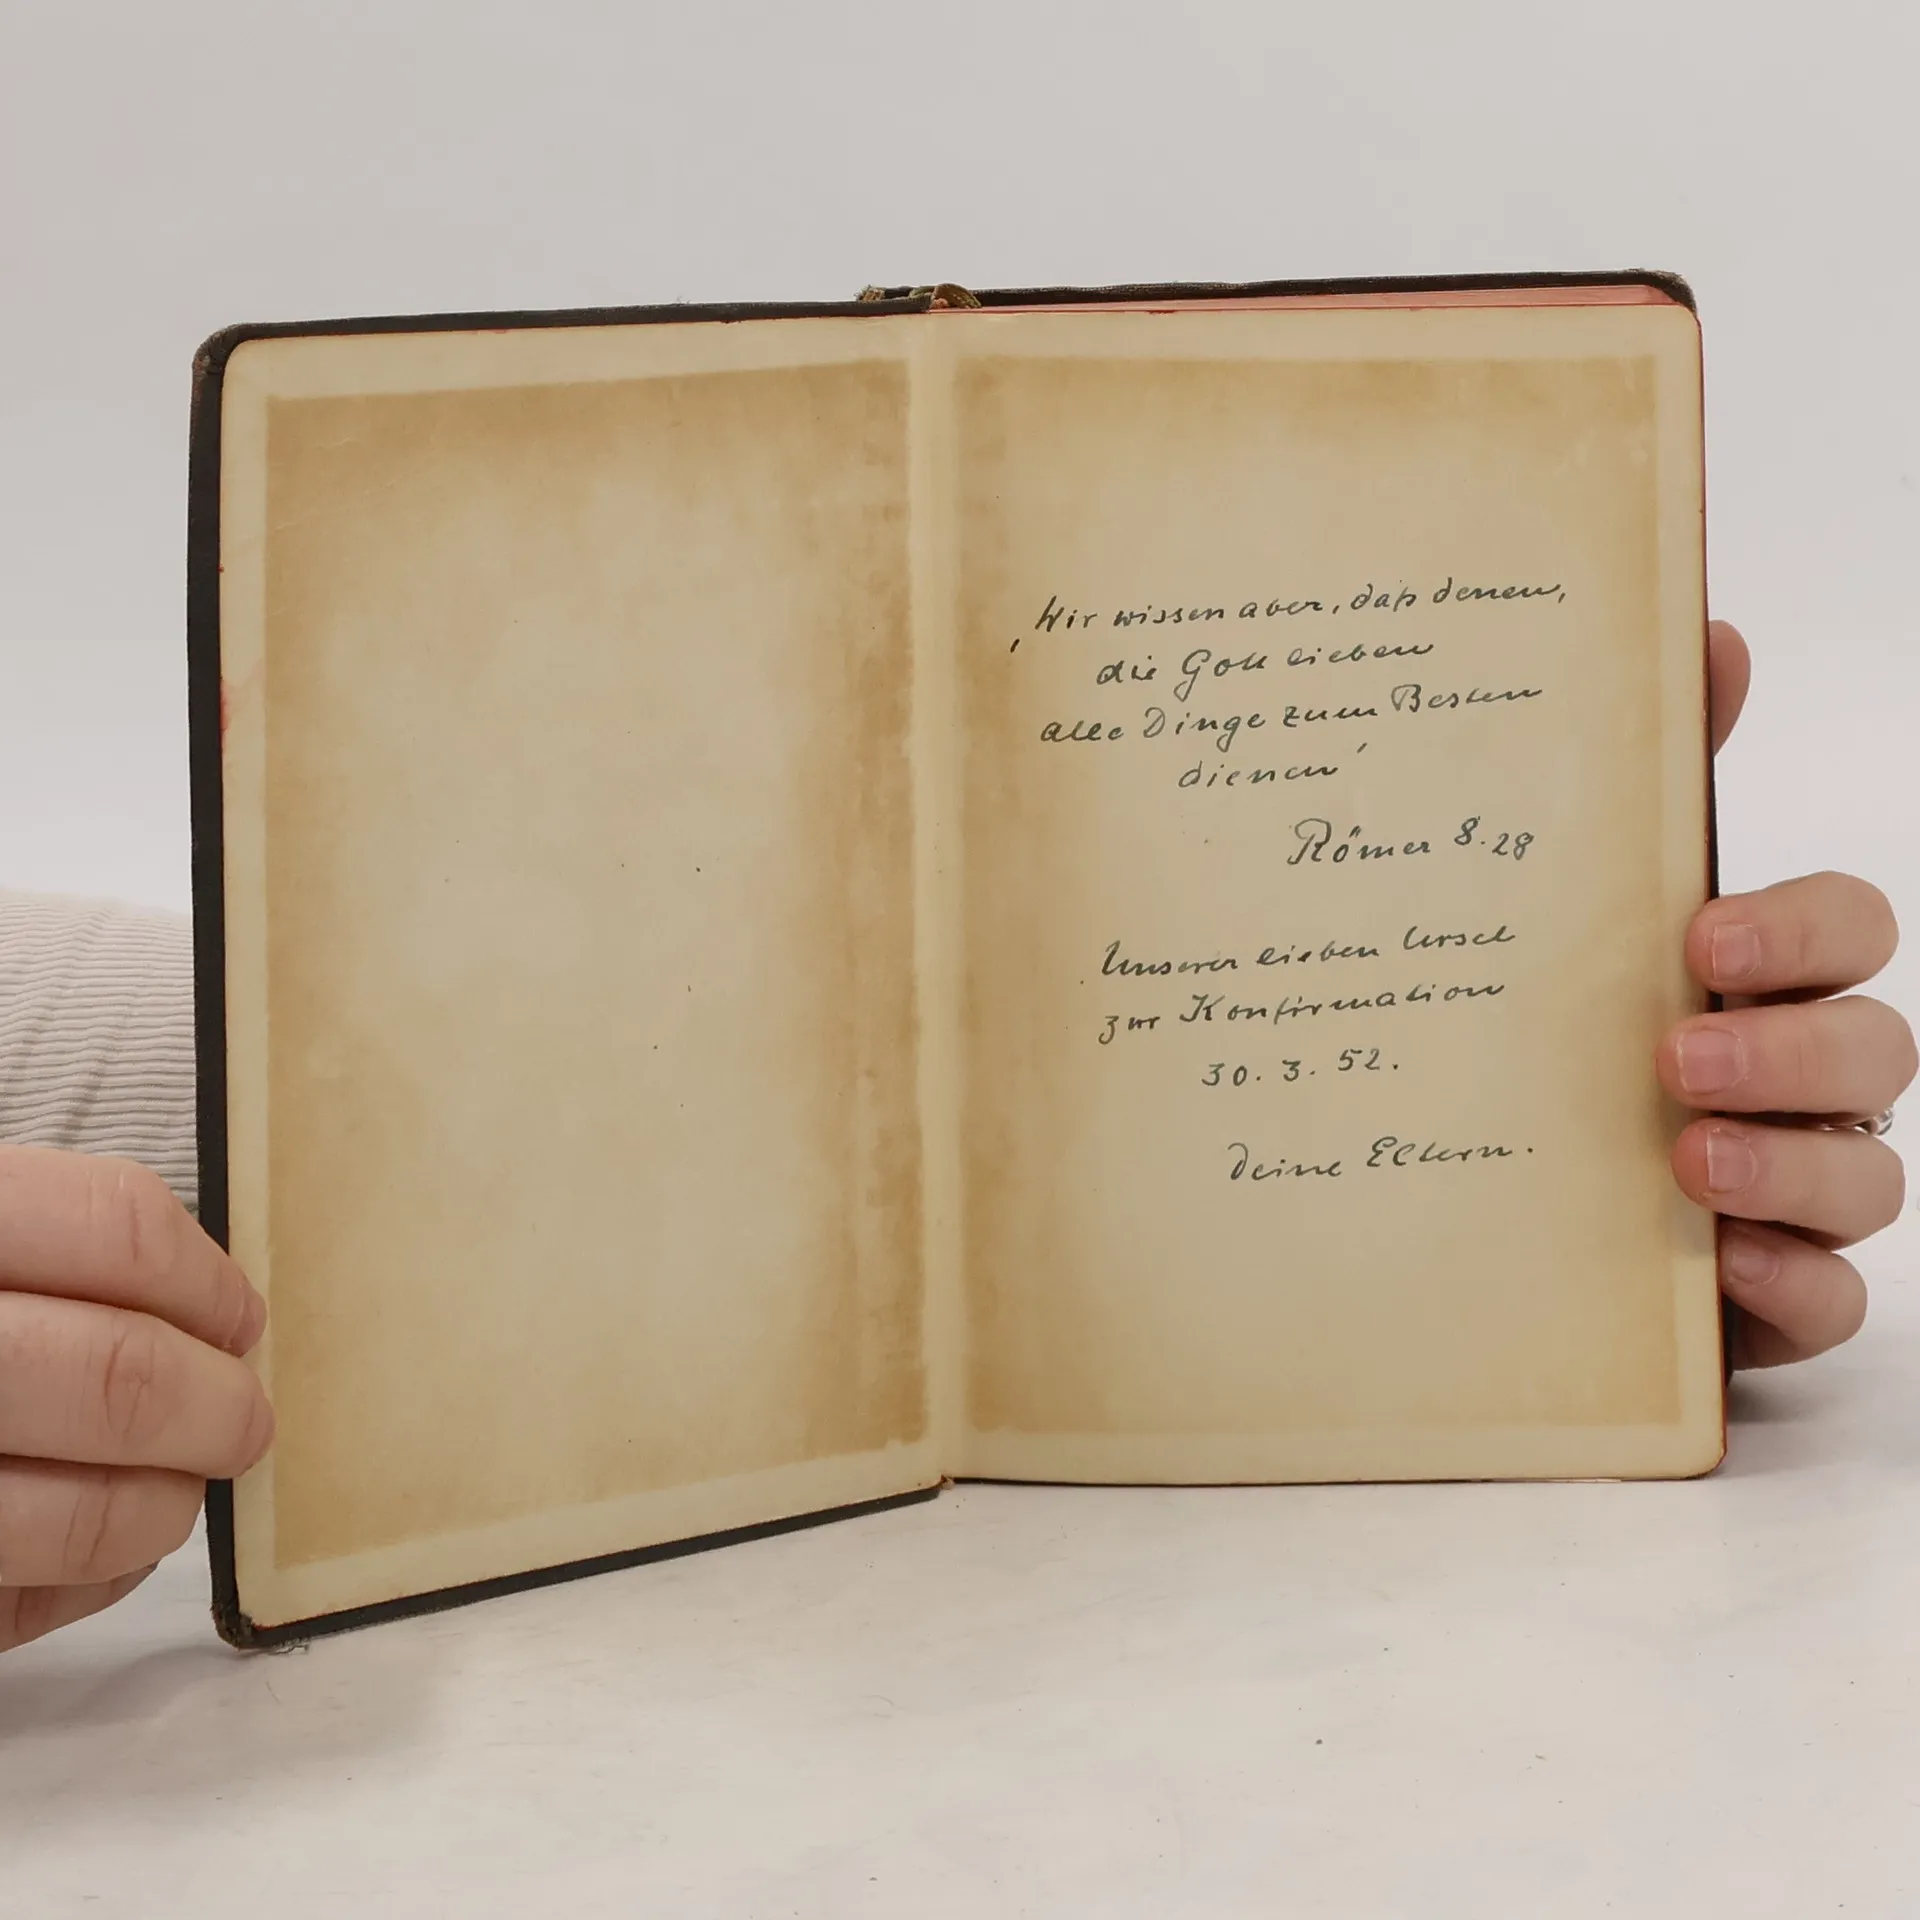 'Wir wissen aber, daß denen,
die Gott lieben
alle Dinge zum Besten
dienen'
Römer 8.28
Unserer lieben Ursel
zur Konfirmation
30. 3. 52.
Deine Eltern.